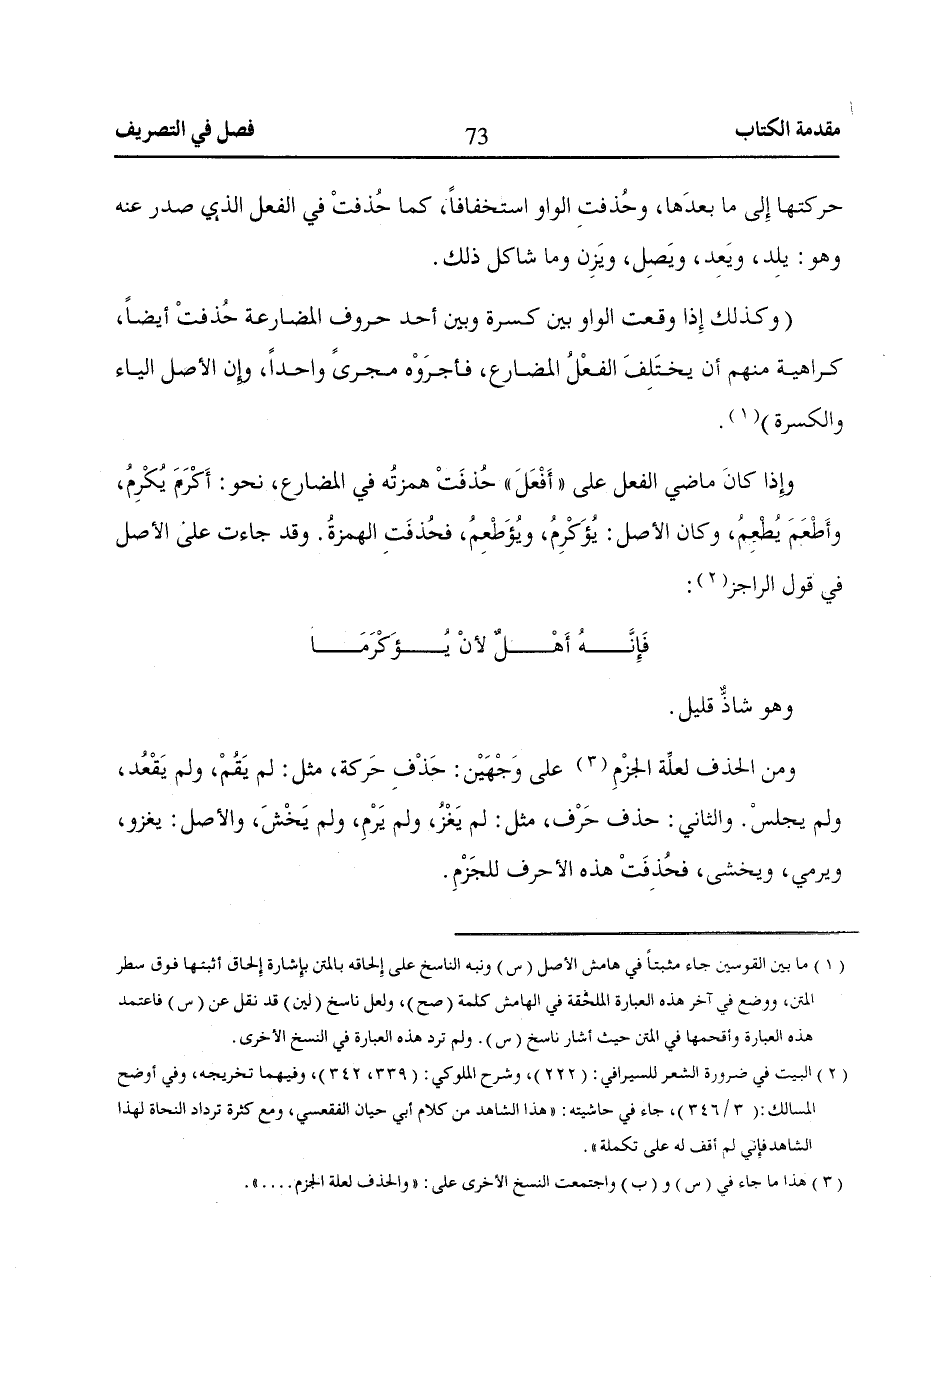 مقدمة الكتاب 73 فصل في التصريف
حركتها إلى ما بعدَها، وحُذفتِ الواو استخفافاً، كما حُذفتْ في الفعل الذي صدر عنه
وهو: يلِد، ويَعِد، ويَصِل، ويَزِن وما شاكل ذلك.
(وكذلك إذا وقعت الواو بين كسرة وبين أحد حروف المضارعة حُذفتْ أيضاً،
كراهية منهم أن يختَلِفَ الفعْلُ المضارع، فأجرَوْه مجرىً واحداً، وإن الأصل الياء
والكسرة)(١).
وإذا كانَ ماضي الفعل على «أَفْعَلَ» حُذفَتْ همزتُه في المضارع، نحو: أَكْرَمَ يُكْرِمُ،
وأَطْعَمَ يُطْعِمُ، وكان الأصل: يُؤَكْرِمُ، ويُؤَطْعِمُ، فحُذفَتِ الهمزةُ. وقد جاءت علىٰ الأصل
في قول الراجز(٢):
فَإِنَّــهُ أَهْــلٌ لأنْ يُــؤَكْرَمَــا
وهو شاذٌّ قليل.
ومن الحذف لعلّة الجزْمِ(٣) على وَجْهَيْن: حَذْفِ حَركة، مثل: لم يَقُمْ، ولم يَقْعُد،
ولم يجلسْ. والثاني: حذف حَرْف، مثل: لم يَغْزُ، ولم يَرْمِ، ولم يَخْشَ، والأصل: يغزو،
ويرمي، ويخشى، فحُذِفَتْ هذه الأحرف للجَزْمِ.
(١) ما بين القوسين جاء مثبتاً في هامش الأصل (س) ونبه الناسخ على إلحاقه بالمتن بإشارة إلحاق أثبتها فوق سطر
المتن، ووضع في آخر هذه العبارة الملحقة في الهامش كلمة (صح)، ولعل ناسخ (لين) قد نقل عن (س) فاعتمد
هذه العبارة وأقحمها في المتن حيث أشار ناسخ (س). ولم ترد هذه العبارة في النسخ الأخرى.
(٢) البيت في ضرورة الشعر للسيرافي: (٢٢٢)، وشرح الملوكي: (٣٣٩، ٣٤٢)، وفيهما تخريجه، وفي أوضح
المسالك:( ٣/ ٣٤٦)، جاء في حاشيته: «هذا الشاهد من كلام أبي حيان الفقعسي، ومع كثرة ترداد النحاة لهذا
الشاهد فإني لم أقف له على تكملة».
(٣) هذا ما جاء في (س) و (ب) واجتمعت النسخ الأخرى على: «والحذف لعلة الجزم....».